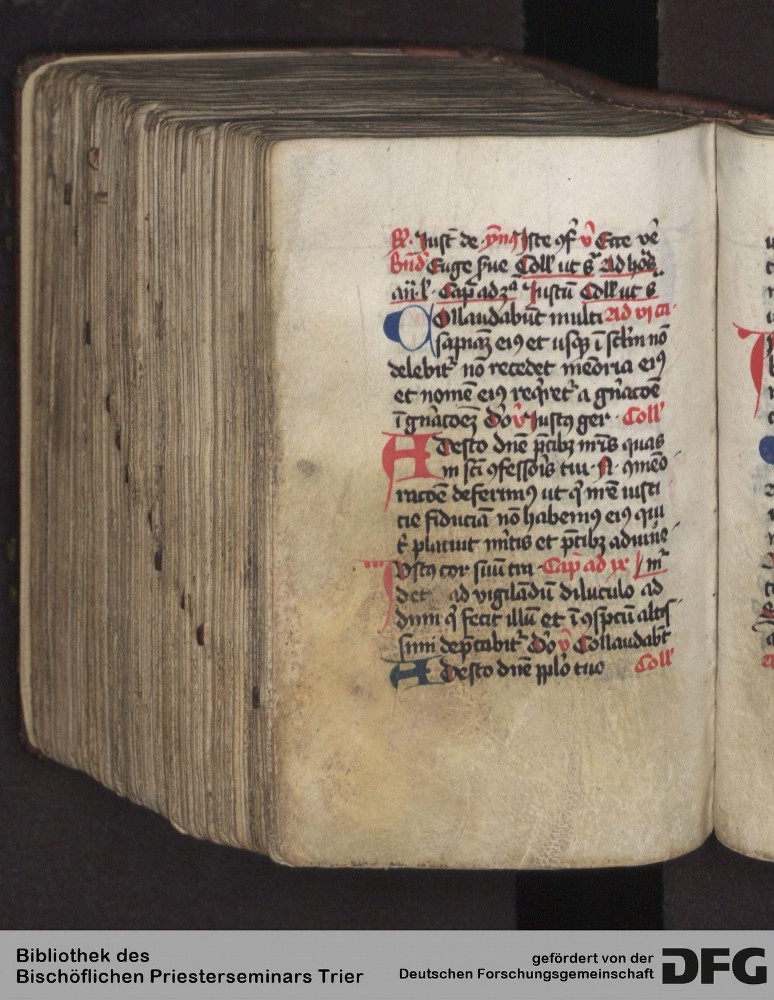 R. Iust de ymg Iste 9f v Ecce ve
Bnd Euge sue Coll ut s Ad hos
an l Cap ad 3a Iustu Coll ut s
Collaudabut multi Ad vi ca
sapiaz ei9 et usq3 i sclm no
delebit no recedet memoria ei9
et nomē ei9 reqret a gnacoe
i gnacoez Do v Iust9 ger Coll
Adesto dne pcib3 nris quas
in sci 9fessoris tui N 9meo
racoe deferim9 ut q nre iusti
cie fiducia no habem9 ei9 qui
t placuit mitis et pcib3 adiuue
Iust9 cor suu tra Cap ad ix
det ad vigiladu diluculo ad
dnm q fecit illu et i 9spcu altis
simi depcabit Do v Collaudabt
Adesto dne pplo tuo Coll
Bibliothek des
Bischöflichen Priesterseminars Trier
gefördert von der
Deutschen Forschungsgemeinschaft
DFG